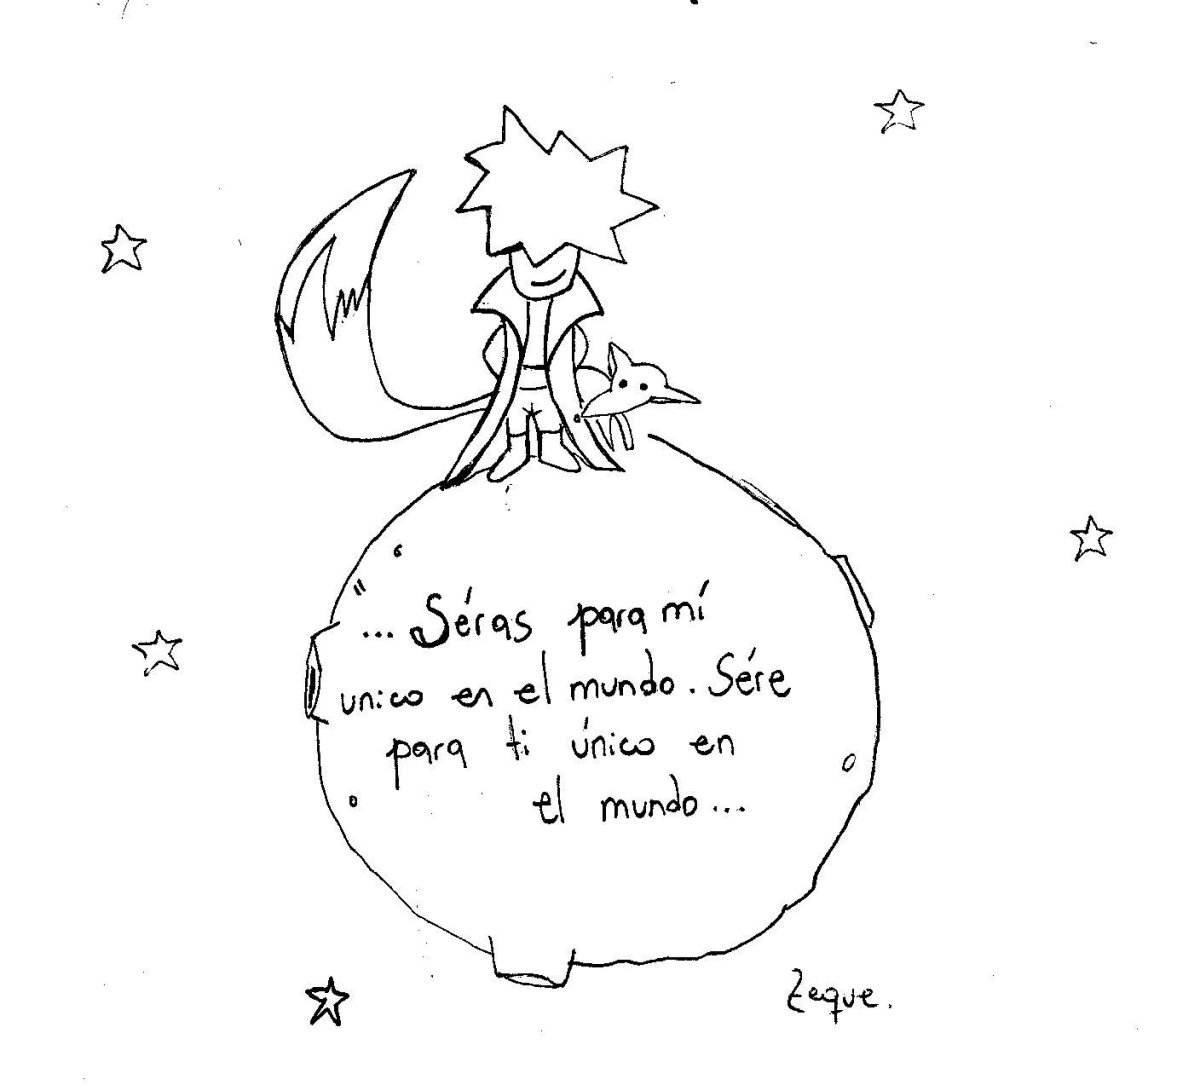 ... Séras para mí
unico en el mundo. Sére
para ti único en
el mundo...
Zeque.